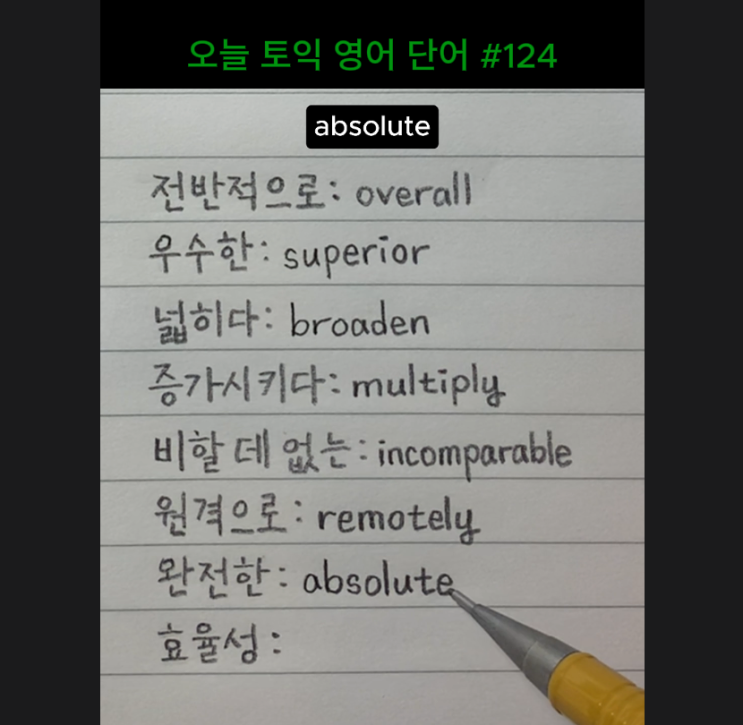 오늘 토익 영어 단어 #124
absolute
전반적으로: overall
우수한: superior
넓히다: broaden
증가시키다: multiply
비할 데 없는: incomparable
원격으로: remotely
완전한: absolute
효율성: